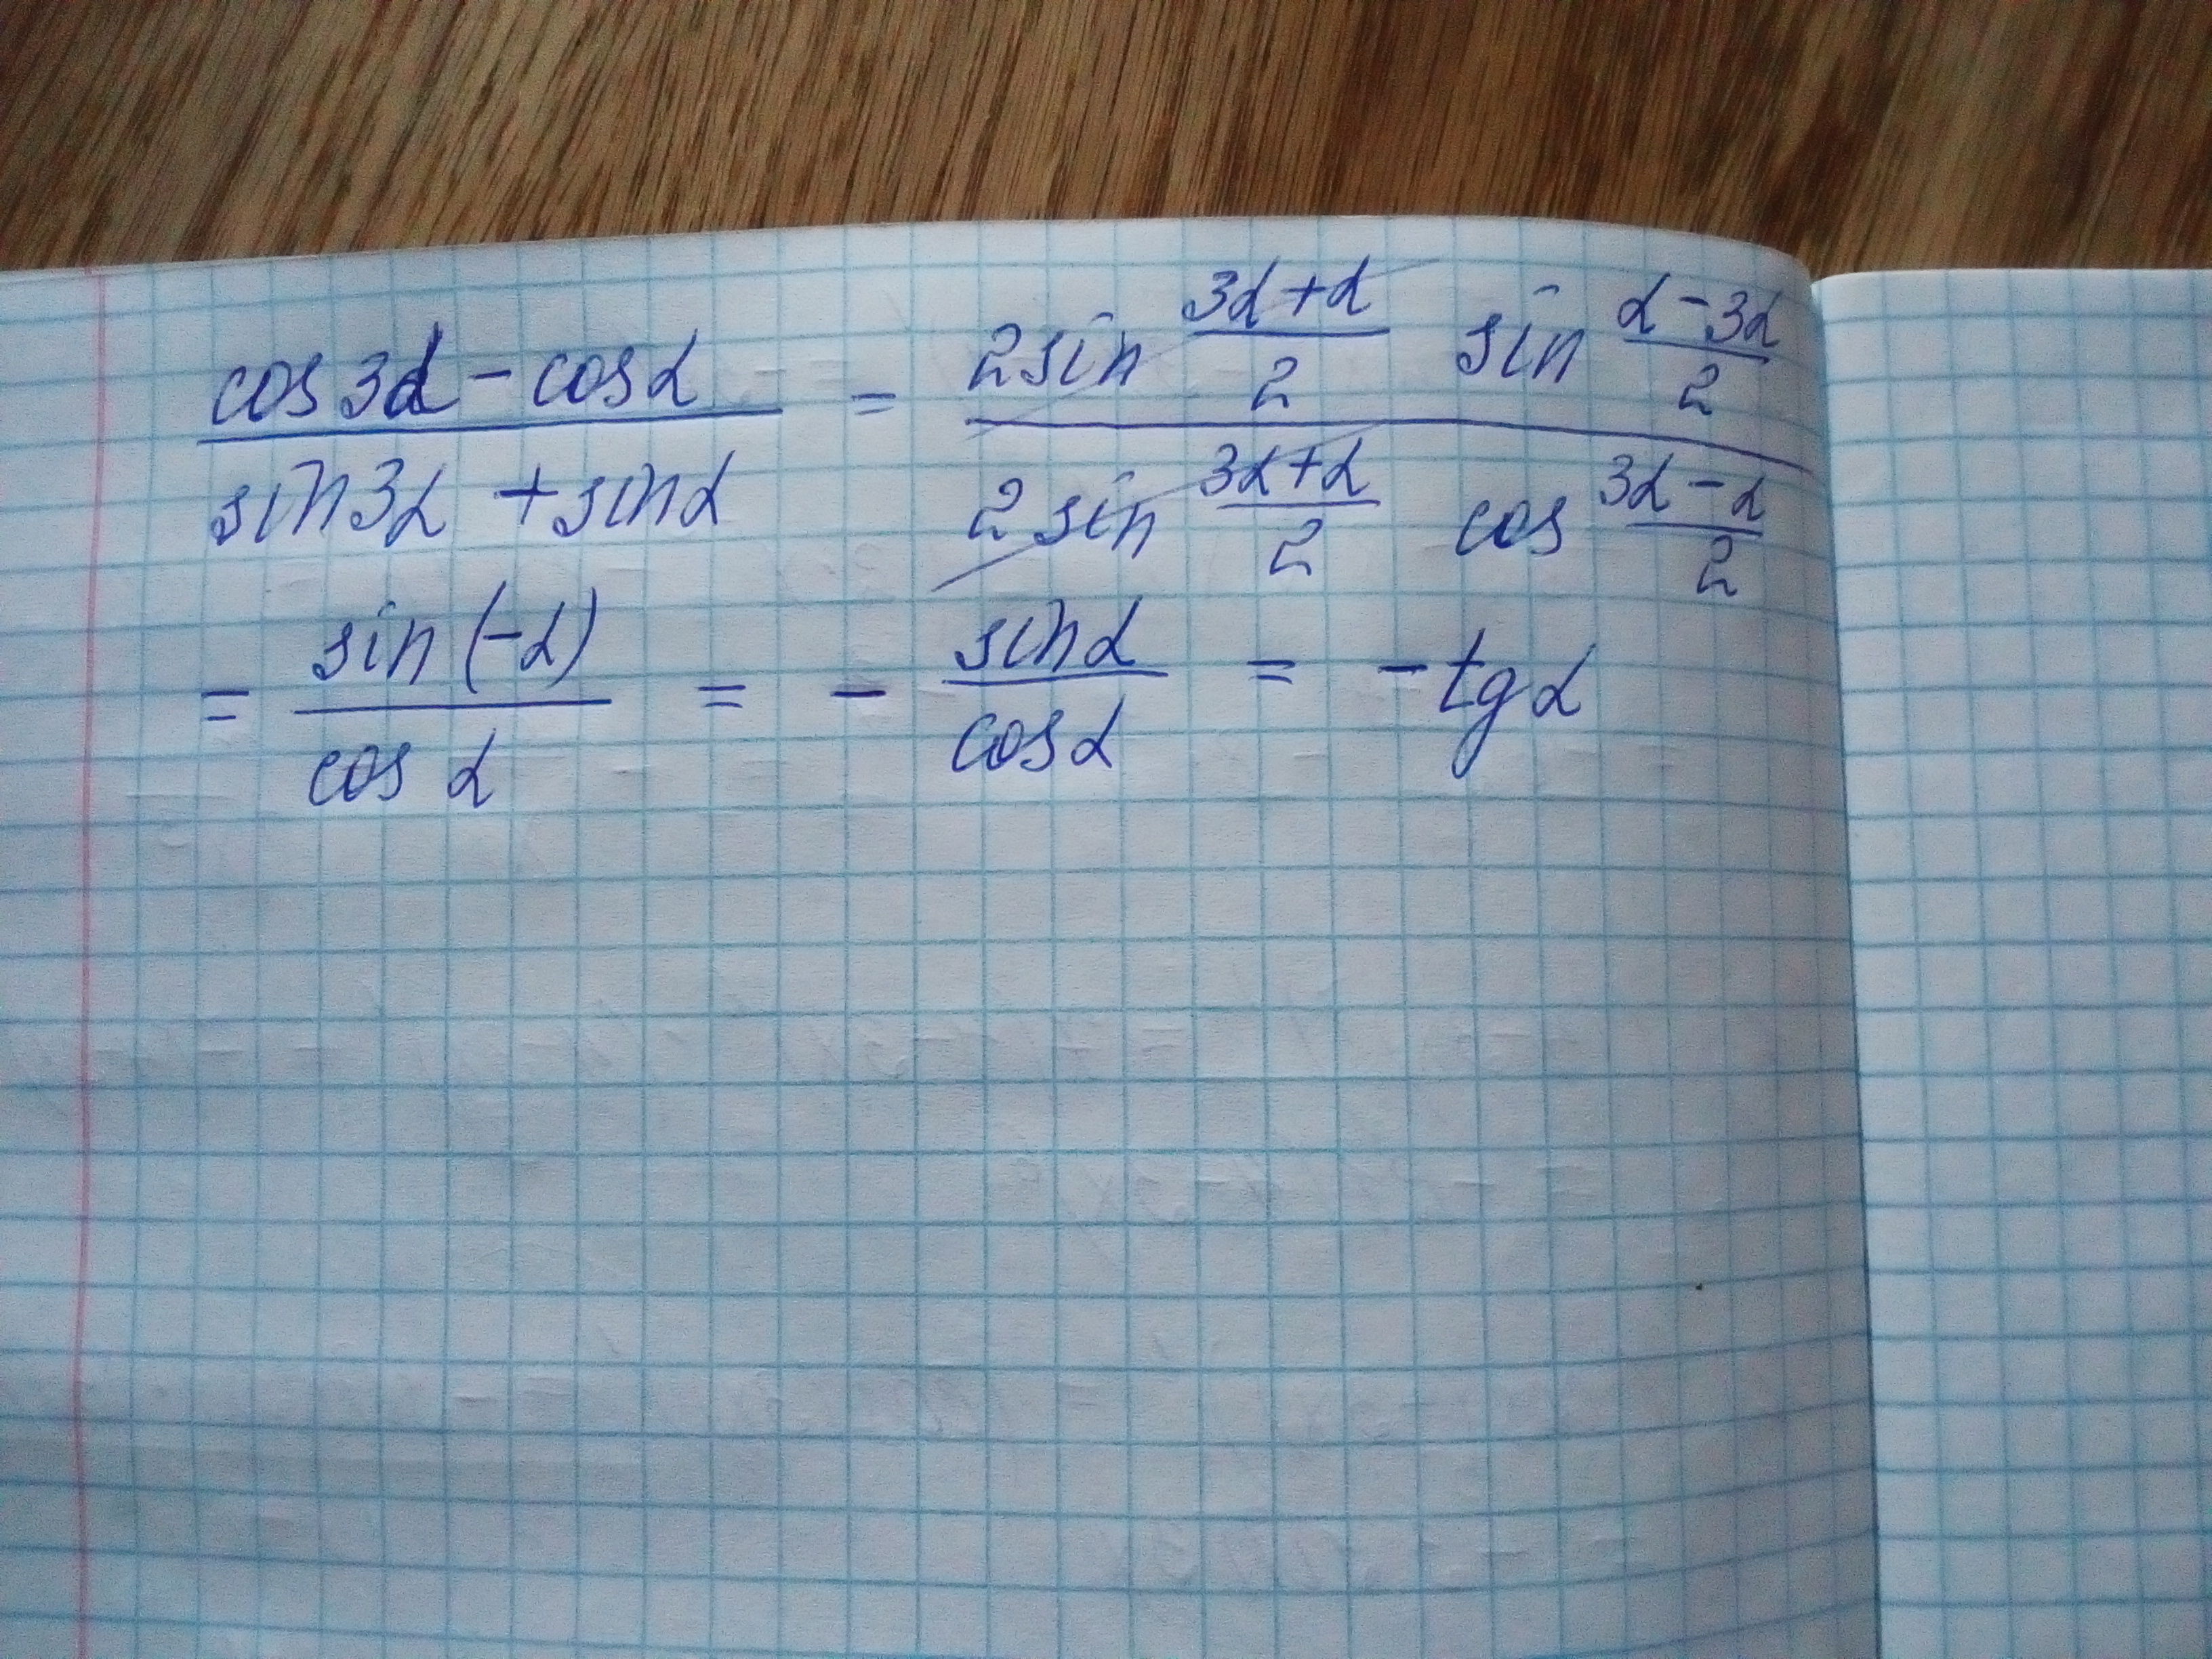 (cos3α - cosα)/(sin3α + sinα) = (2sin (3α+α)/2 sin (α-3α)/2)/(2sin (3α+α)/2 cos (3α-α)/2)
= sin(-α)/cos α = - sinα/cosα = -tgα